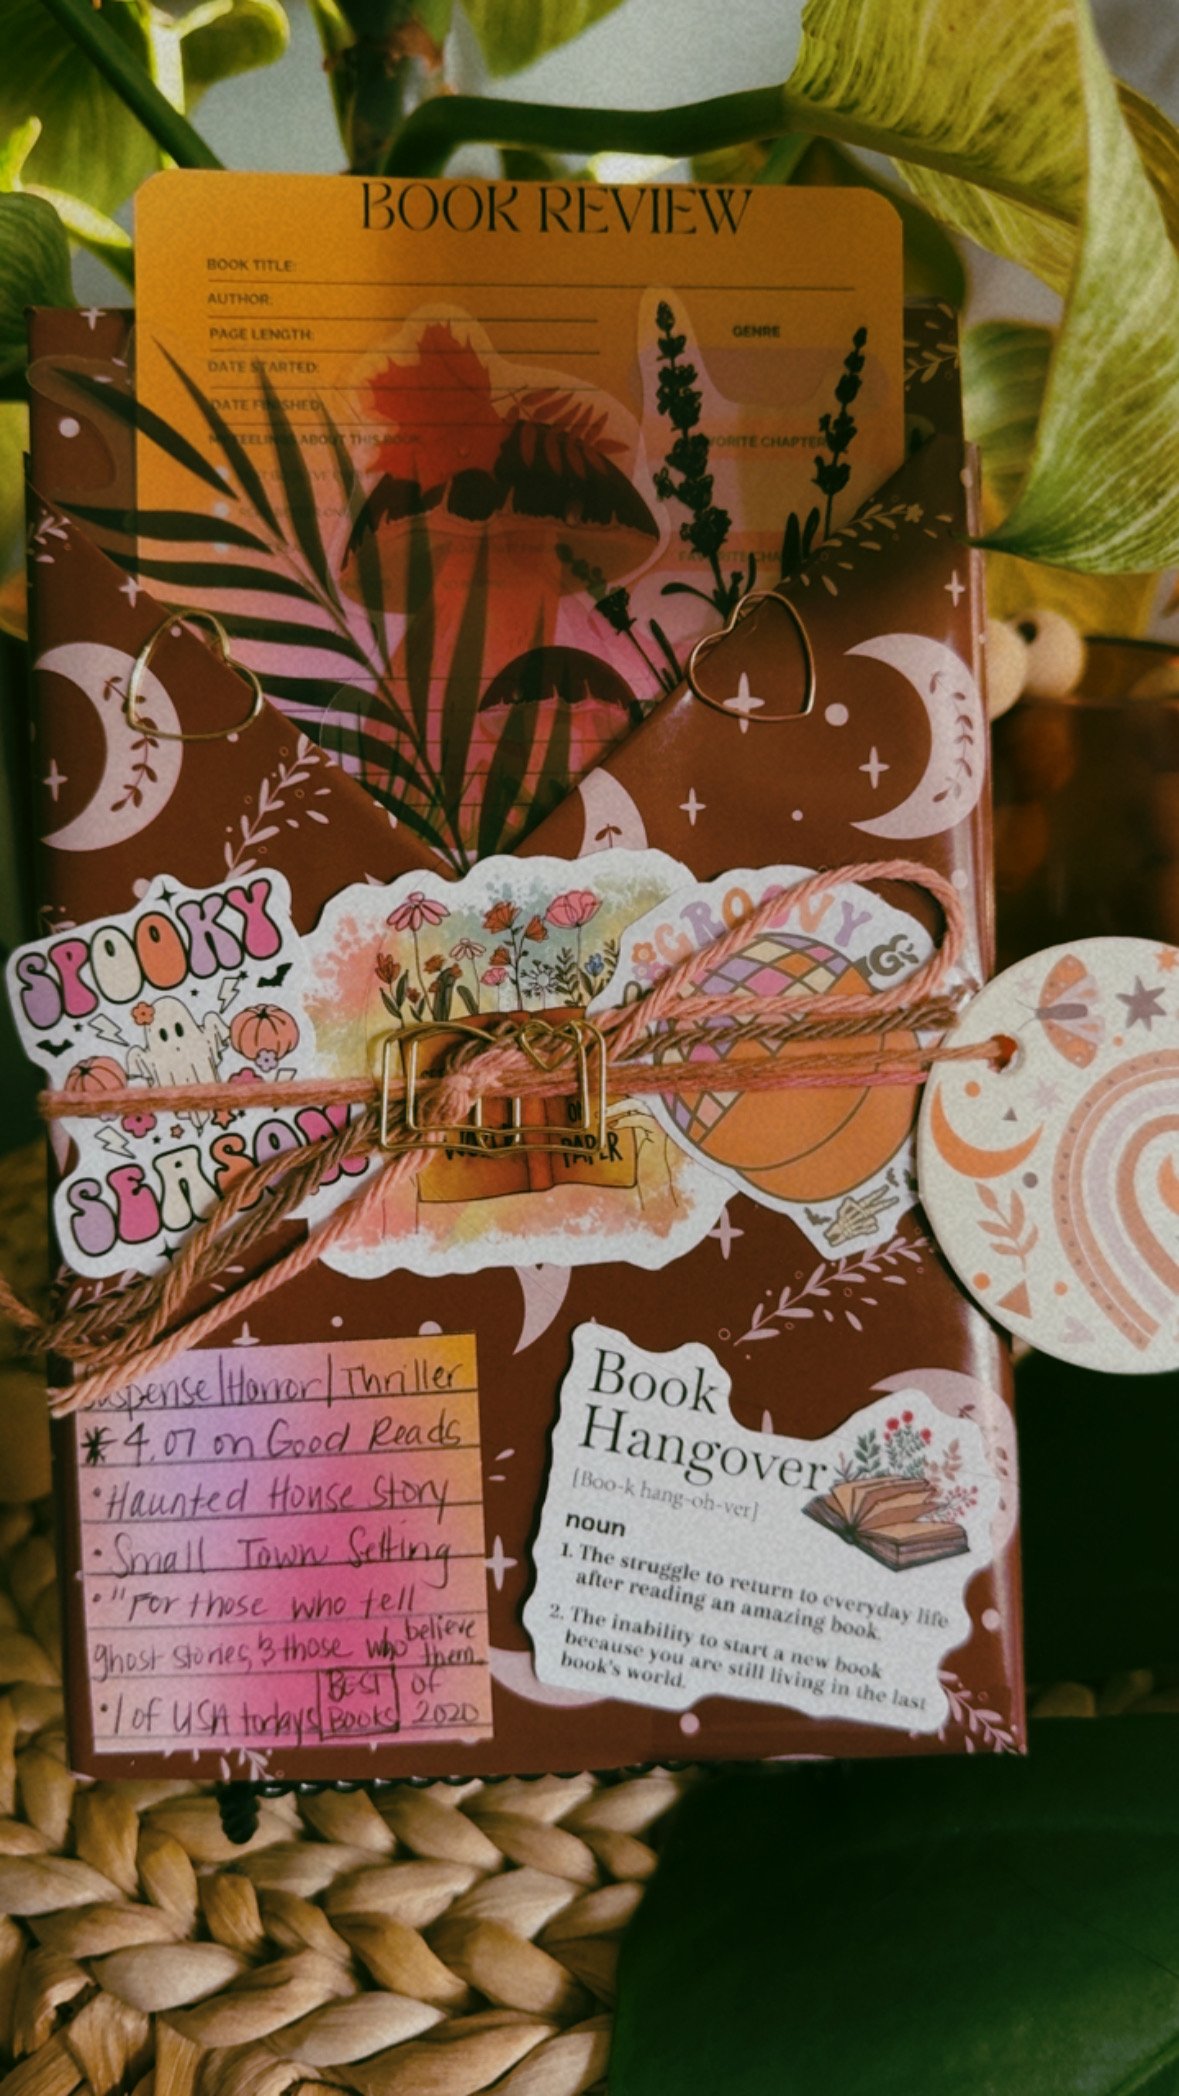 BOOK REVIEW
BOOK TITLE:
AUTHOR:
PAGE LENGTH:
GENRE
DATE STARTED:
DATE FINISHED:
MY FEELINGS ABOUT THIS BOOK
FAVORITE CHAPTER
SPOOKY
SEASON
GROOVY
&
PAPER
Suspense/Horror/Thriller
* 4.07 on Good Reads
• Haunted House Story
• Small Town Setting
• "For those who tell
ghost stories, & those who believe them.
• 1 of USA todays BEST BOOKS of 2020
Book
Hangover
[Boo-k hang-oh-ver]
noun
1. The struggle to return to everyday life
after reading an amazing book.
2. The inability to start a new book
because you are still living in the last
book's world.